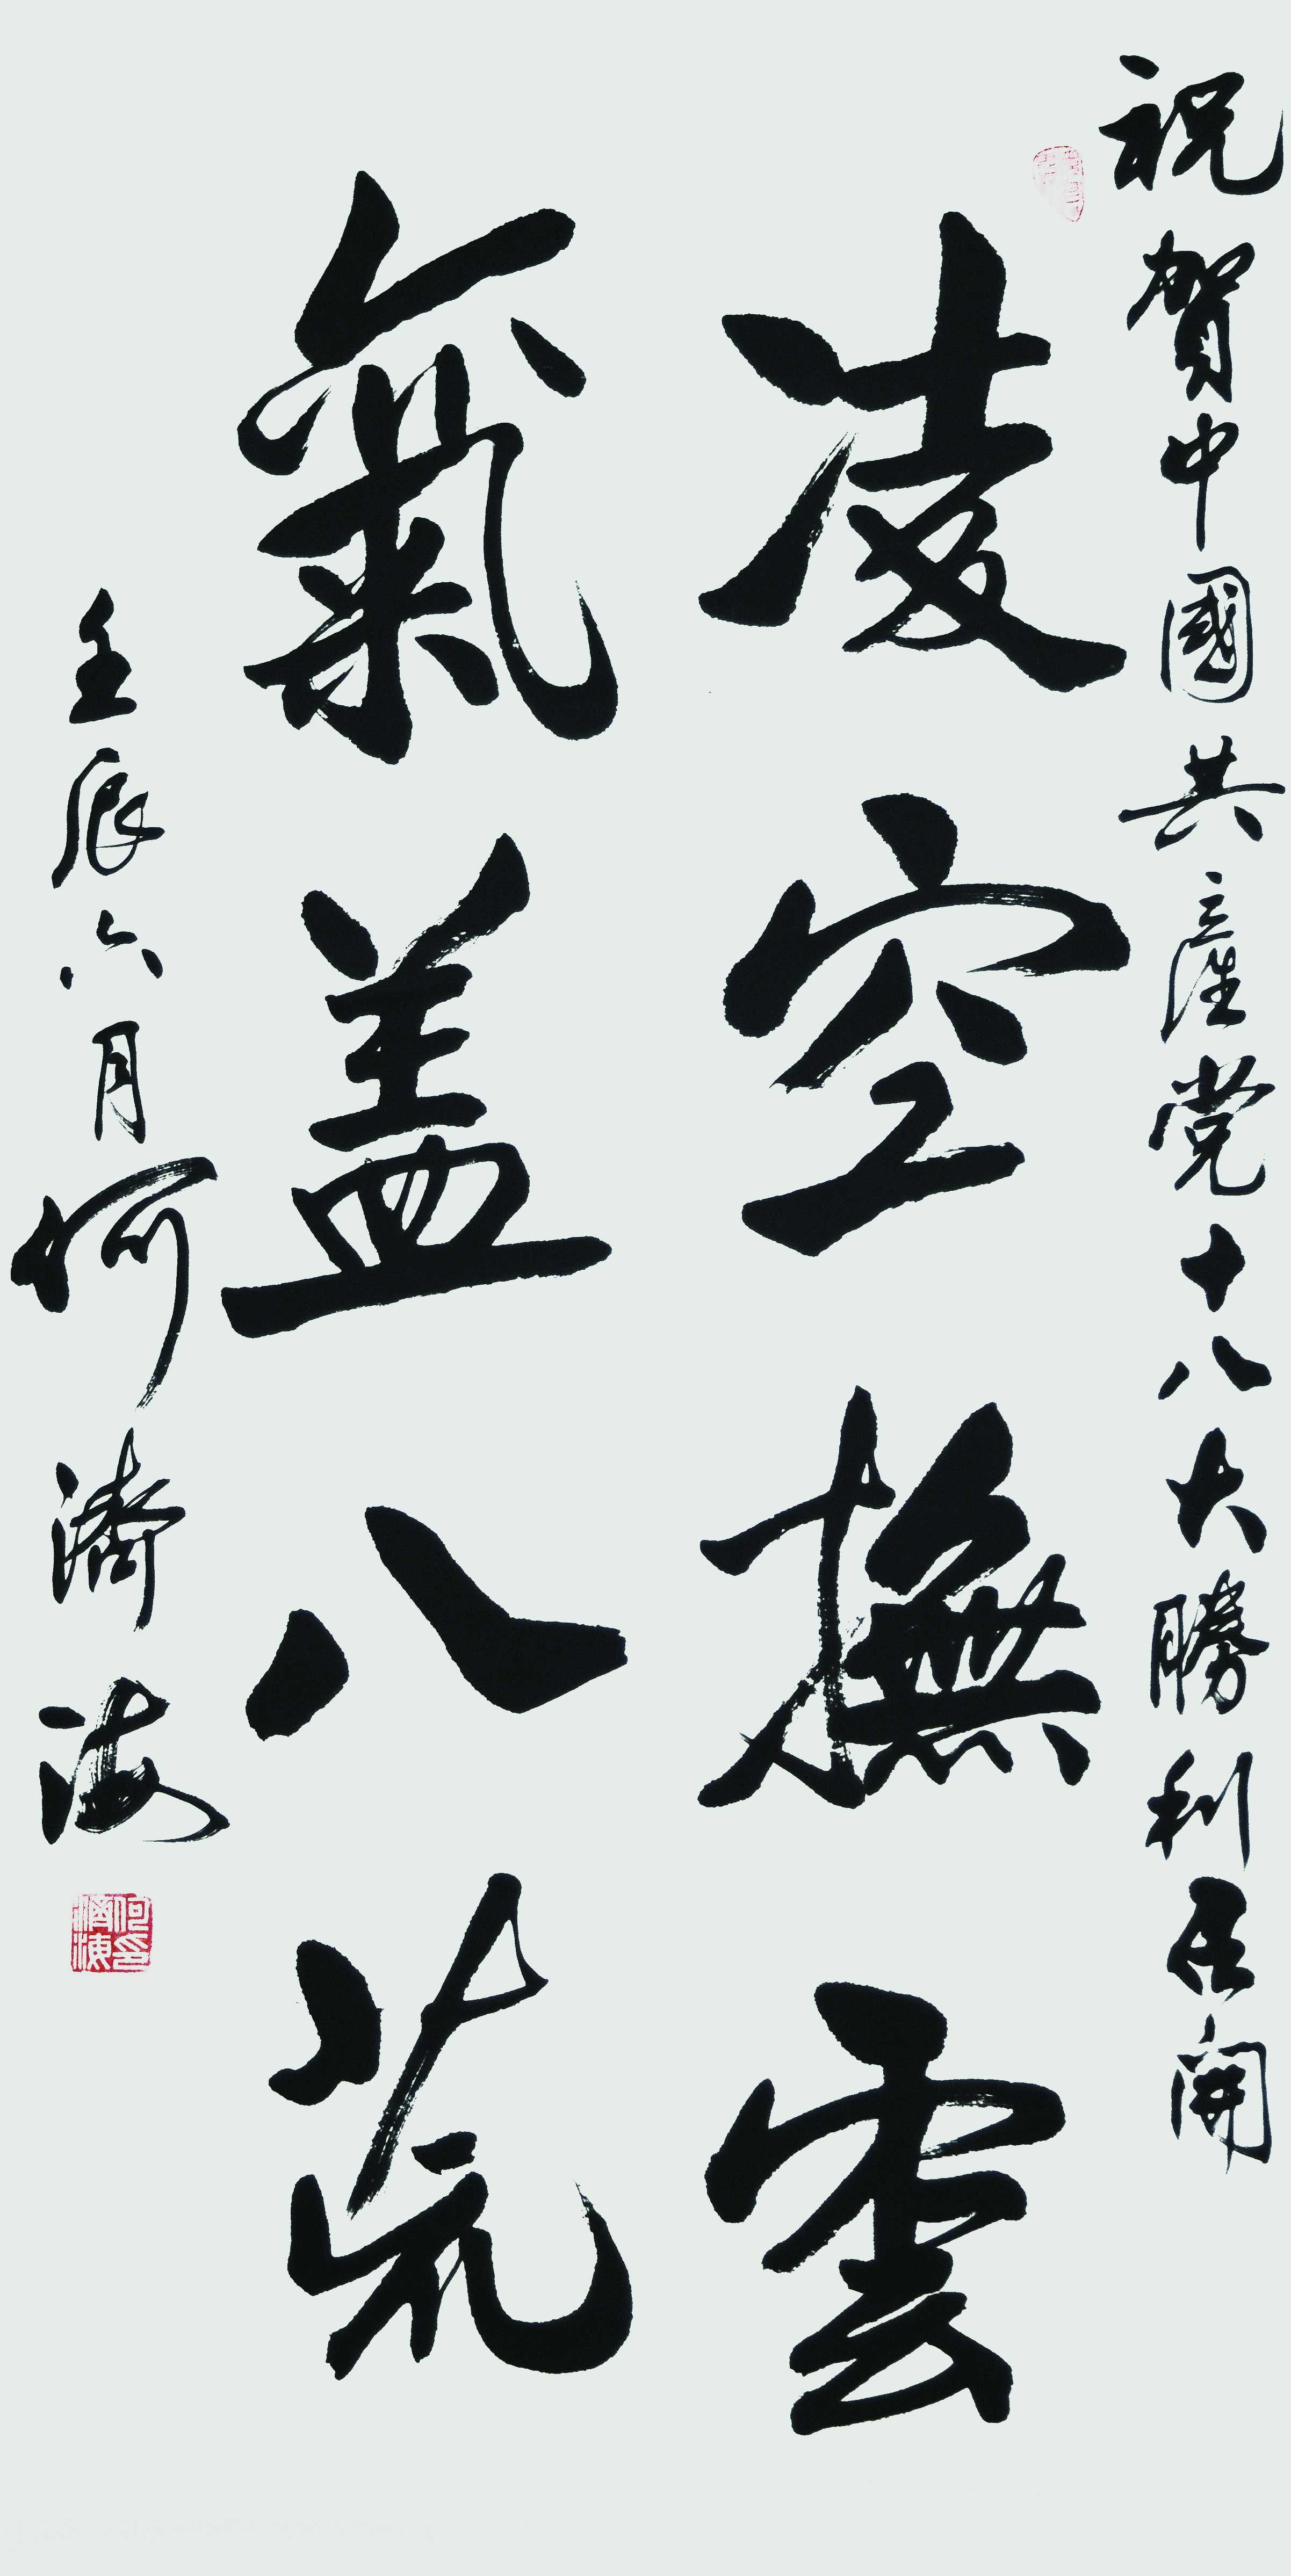 祝賀中國共產党十八大勝利召開
凌空撫雲
氣盖八荒
壬辰六月何濟海
何濟海印